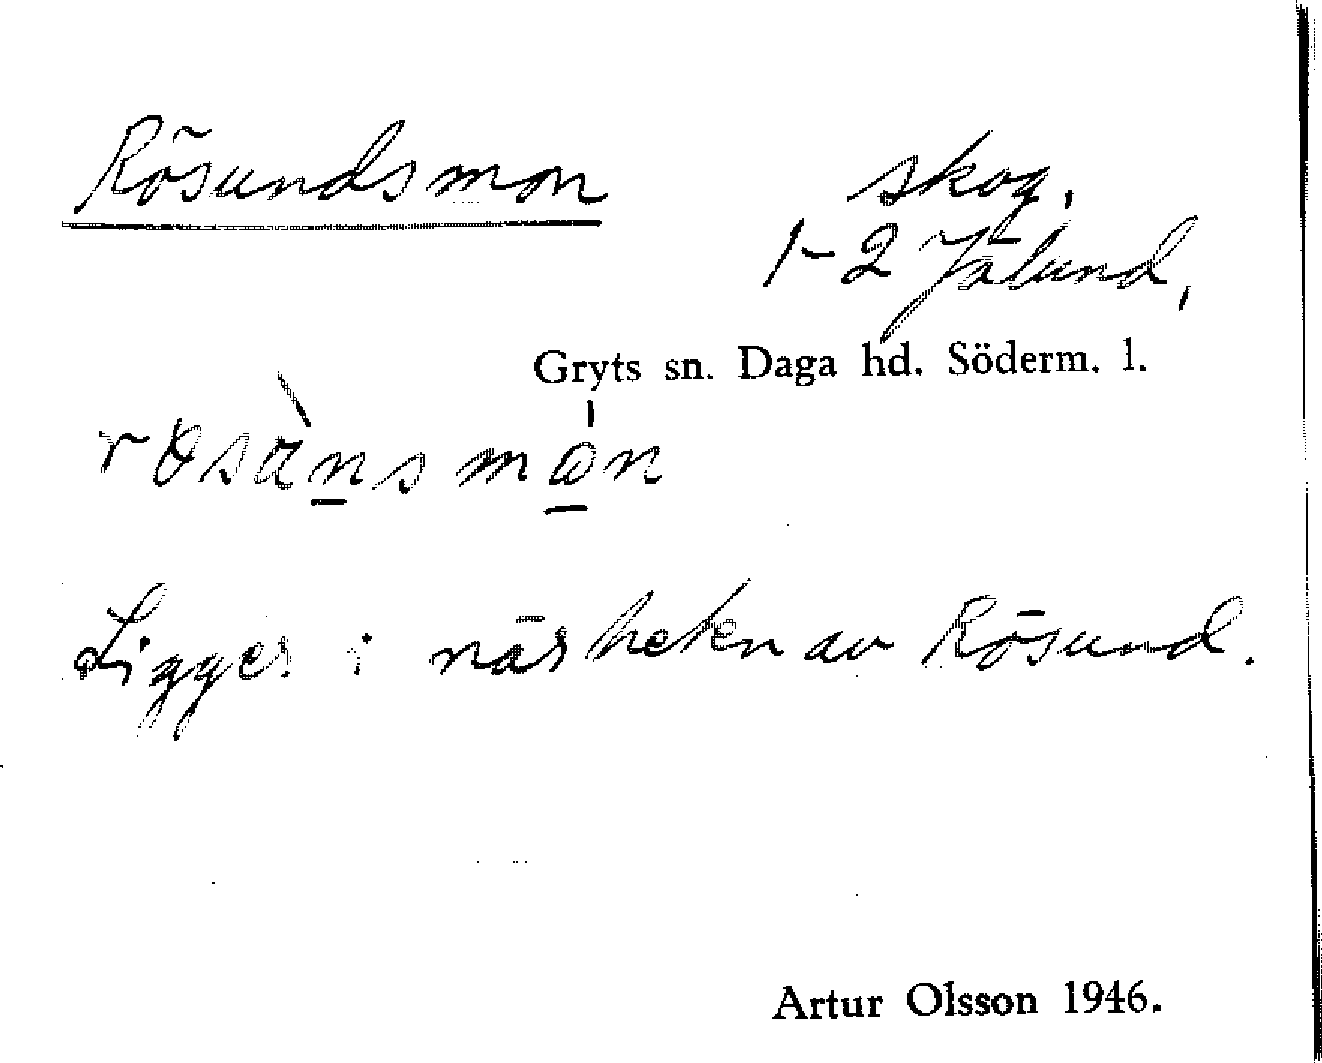 Rösundsmon
skog.
1-2 Jälund,
Gryts sn. Daga hd. Söderm. l.
Ligger i närheten av Rösund.
Artur Olsson 1946.